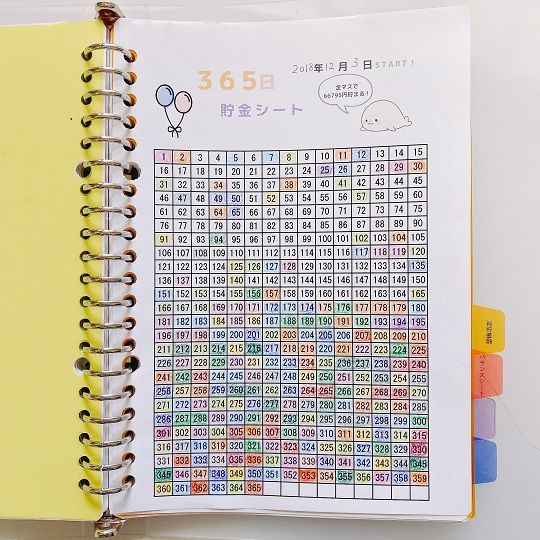 2018年12月3日START!
365日
貯金シート
全マスで
66795円貯まる！
1 2 3 4 5 6 7 8 9 10 11 12 13 14 15
16 17 18 19 20 21 22 23 24 25 26 27 28 29 30
31 32 33 34 35 36 37 38 39 40 41 42 43 44 45
46 47 48 49 50 51 52 53 54 55 56 57 58 59 60
61 62 63 64 65 66 67 68 69 70 71 72 73 74 75
76 77 78 79 80 81 82 83 84 85 86 87 88 89 90
91 92 93 94 95 96 97 98 99 100 101 102 103 104 105
106 107 108 109 110 111 112 113 114 115 116 117 118 119 120
121 122 123 124 125 126 127 128 129 130 131 132 133 134 135
136 137 138 139 140 141 142 143 144 145 146 147 148 149 150
151 152 153 154 155 156 157 158 159 160 161 162 163 164 165
166 167 168 169 170 171 172 173 174 175 176 177 178 179 180
181 182 183 184 185 186 187 188 189 190 191 192 193 194 195
196 197 198 199 200 201 202 203 204 205 206 207 208 209 210
211 212 213 214 215 216 217 218 219 220 221 222 223 224 225
226 227 228 229 230 231 232 233 234 235 236 237 238 239 240
241 242 243 244 245 246 247 248 249 250 251 252 253 254 255
256 257 258 259 260 261 262 263 264 265 266 267 268 269 270
271 272 273 274 275 276 277 278 279 280 281 282 283 284 285
286 287 288 289 290 291 292 293 294 295 296 297 298 299 300
301 302 303 304 305 306 307 308 309 310 311 312 313 314 315
316 317 318 319 320 321 322 323 324 325 326 327 328 329 330
331 332 333 334 335 336 337 338 339 340 341 342 343 344 345
345 346 347 348 349 350 351 352 353 354 355 356 357 358 359
360 361 362 363 364 365
バランスシート